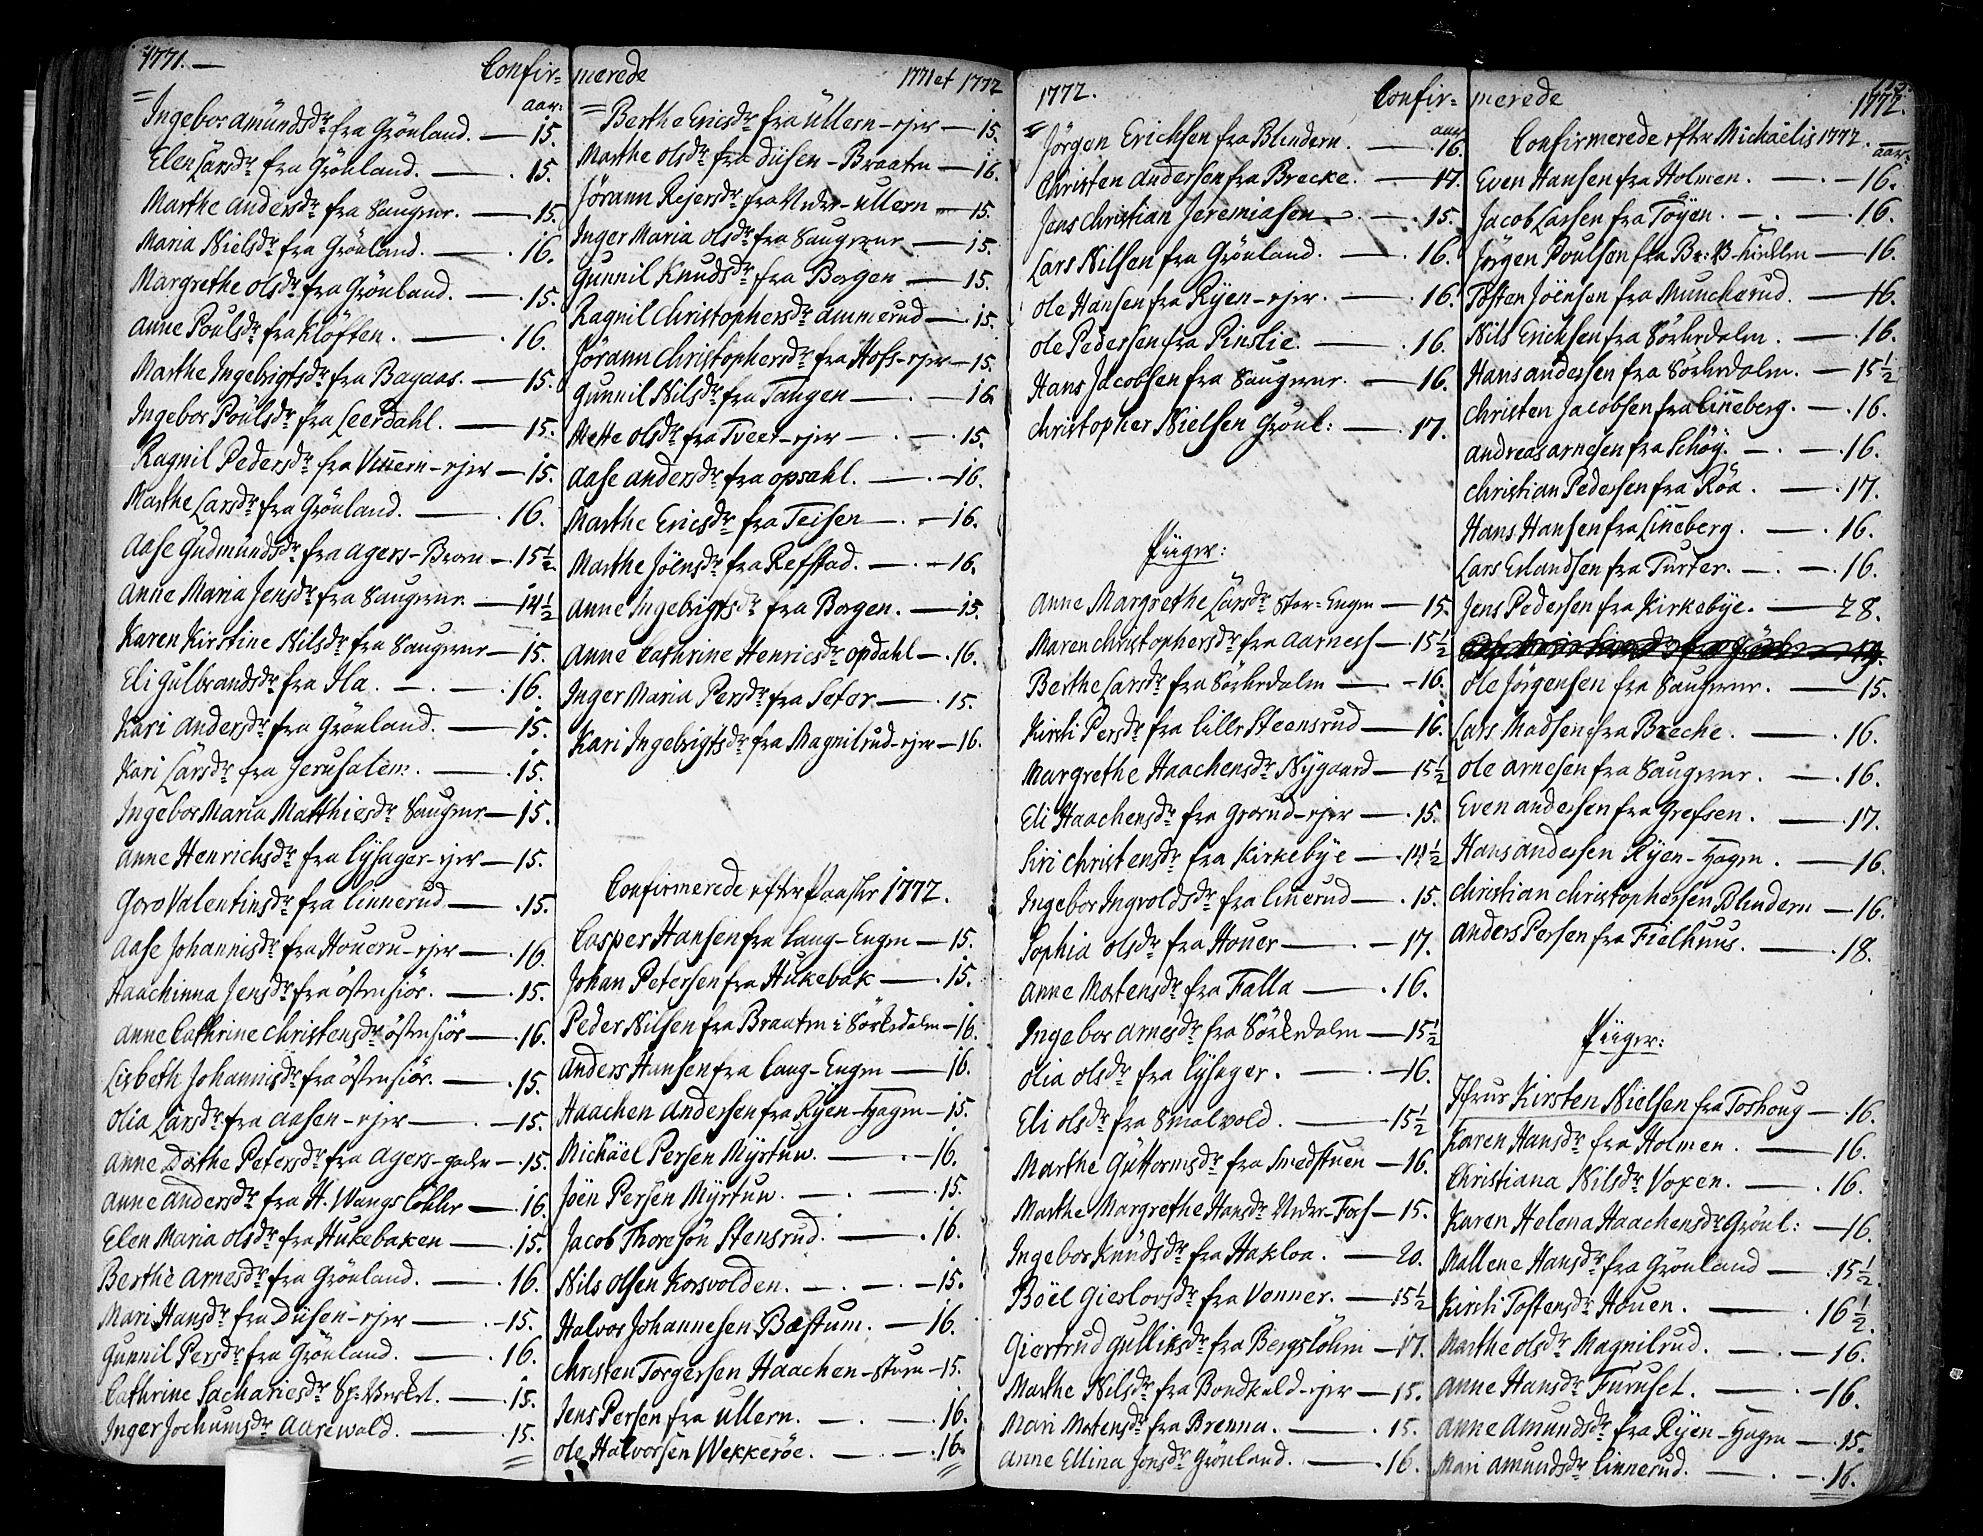 1771. — Confir=
aar:
Ingebor Amündsdr fra Grönland. — 15.
Elen Larsdr fra Grönland. — 15.
Marthe Andersdr fra Saugener. — 15.
Maria Nielsdr fra Grönland. — 16.
Margrethe Olsdr fra Grönland. — 15.
Anne Poulsdr fra Klöften. — 16.
Marthe Ingebrigtsdr fra Bagaas. — 15.
Ingebor Poulsdr fra Leerdahl. — 15.
Ragnil Pedersdr fra — ejer — 15.
Marthe Larsdr fra Grönland. — 16.
Aase Gudmundsdr fra Agers- — 15½
Anne Maria Jensdr fra Saugener — 14½
Karen Kirstine Nilsdr fra Saugener — 15.
Eli Gulbrandsdr fra Ila. — 16.
Kari Andersdr fra Grönland. — 15.
Kari Larsdr fra Jerusalem. — 15.
Ingebor Maria Matthiesdr Saugener — 15.
Anne Henrichsdr fra Lysager-ejer — 15.
Goro Valentinsdr fra Linnerud. — 15.
Aase Johannisdr fra — ejer — 16.
Haachinna Jensdr fra Östensiör. — 15.
Anne Cathrine Christensdr Östensiör — 16.
Lisbeth Johannisdr fra Östensiör. — 15.
Olia Larsdr fra Aasen-ejer — 15.
Anne Dorthe Petersdr fra Agers- — 15.
Anne Andersdr fra H. Wangs Löhke — 16.
Elen Maria Olsdr fra Hukebaken — 15.
Berthe Arnesdr fra Grönland. — 16.
Mari Hansdr fra Diisen-ejer — 15.
Gunnil Persdr fra Grönland. — 16.
Cathrine Sachariesdr Sp: — 15.
Inger Jochumsdr Aarewold. — 15.
merede 1771 et 1772
Berthe Ericsdr fra Üllern-ejer — 15.
Marthe Olsdr fra Diisen-Braaten — 16.
Jörann Rejersdr fra Neder-Ullern — 15.
Inger Maria Olsdr fra Saugener — 15.
Gunnil Knudsdr fra Borgen — 15.
Ragnil Christophersdr Ammerud — 15.
Jörann Christophersdr fra Hofs-ejer — 15.
Gunnil Nilsdr fra Tangen — 16.
Mette Olsdr fra Tveet-ejer — 15.
Aase Andersdr fra Opsahl. — 16.
Marthe Ericsdr fra Teisen — 16.
Marthe Jöensdr fra Refstad. — 16.
Anne Ingebrigtsdr fra Borgen. — 15.
Anne Cathrine Henricsdr Opdahl — 16.
Inger Maria Persdr fra Seter. — 15.
Kari Ingebrigtsdr fra Magnilrud-ejer — 16.
Confirmerede efter Paaske 1772.
Casper Hansen fra Lang-Engen — 15.
Johan Petersen fra Hukebak — 15.
Peder Nilsen fra Braaten i Sörkedalen — 16.
Anders Hansen fra Lang-Engen — 16.
Haachen Andersen fra Ryen-Hagen — 15.
Michäel Persen Myrtuen. — 16.
Joën Persen Myrtuen. — 15.
Jacob Thoresön Stensrud. — 16.
Nils Olsen Korsvolden. — 15.
Halvor Johannesen Bæstum. — 16.
Christen Torgersen Haachen-stuen — 15.
Jens Persen fra Ullern. — 16.
Ole Halvorsen Wekkeröe. — 16.
1772. Confir=
aar
Jörgen Erichsen fra Blindern. — 16.
Christen Andersen fra Brecke. — 17.
Jens Christian Jeremiasen — 15.
Lars Nilsen fra Grönland. — 16.
Ole Hansen fra Ryen-ejer. — 16.
Ole Pedersen fra Pinslie. — 16.
Hans Jacobsen fra Saugener. — 16.
Christopher Nielsen Grönl: — 17.
Piiger:
Anne Margrethe Larsdr Stor-Engen — 15.
Maren Christophersdr fra Aarnes — 15½
Berthe Larsdr fra Sörkedalen — 16.
Kirsti Persdr fra Lille Steensrud — 16.
Margrethe Haachensdr Nygaard — 15½
Eli Haachensdr fra Grorud-ejer — 15.
Siri Christensdr fra Kirkebye — 14½
Ingebor Ingvoldsdr fra Linerud — 15.
Sophia Olsdr fra Houer — 17.
Anne Mortensdr fra Falla — 16.
Ingebor Arnesdr fra Sörkedalen — 15½
Olia Olsdr fra Lysager. — 16.
Eli Olsdr fra Smalvold. — 15½
Marthe Güttormsdr fra Smedstuen — 16.
Marthe Margrethe Hansdr Neder-Fors — 15.
Ingebor Knudsdr fra Hakloa. — 20.
Böel Gieslorsdr fra Venner. — 15½
Giertrud Gulliksdr fra Bergslöhen — 17.
Marthe Nilsdr fra Bondkald-ejer — 15.
Mari Mortensdr fra Brenna. — 15.
Anne Ellina Jonsdr Grönland. — 16.
merede 1772.
Confirmerede efter Michäelis 1772.
aar:
Even Hansen fra Holmen. — 16.
Jacob Larsen fra Töyen. — 16.
Jörgen Poulsen fra — 16.
Tosten Jöensen fra Munckerud. — 16.
Nils Erichsen fra Sörkedalen. — 16.
Hans Andersen fra Sörkedalen. — 15½
Christen Jacobsen fra Lineberg. — 16.
Andreas Arnesen fra Schöy. — 16.
Christian Pedersen fra Röa. — 17.
Hans Hansen fra Lineberg. — 16.
Lars Erlandsen fra Turter. — 16.
Jens Pedersen fra Kirkebye. — 28.
Ole Jörgensen fra Saugener. — 15.
Lars Madsen fra Brecke. — 16.
Ole Arnesen fra Saugener. — 16.
Even Andersen fra Grefsen. — 17.
Hans Andersen Ryen-Hagen. — 16.
Christian Christophersen Blindern — 16.
Anders Persen fra Fielhuus. — 18.
Piiger:
Jfrue Kirsten Nielsen fra Toshoug — 16.
Karen Hansdr fra Holmen. — 16.
Christiana Nilsdr Voxen. — 16.
Karen Helena Haachensdr Grönl: — 16.
Mallene Hansdr fra Grönland — 15½.
Kirsti Tostensdr Houen. — 16½.
Marthe Olsdr Magnilrud. — 16.
Anne Hansdr Furuset. — 16.
Anne Amundsdr fra Ryen-Hagen — 15.
Mari Amundsdr Linnerud. — 16.